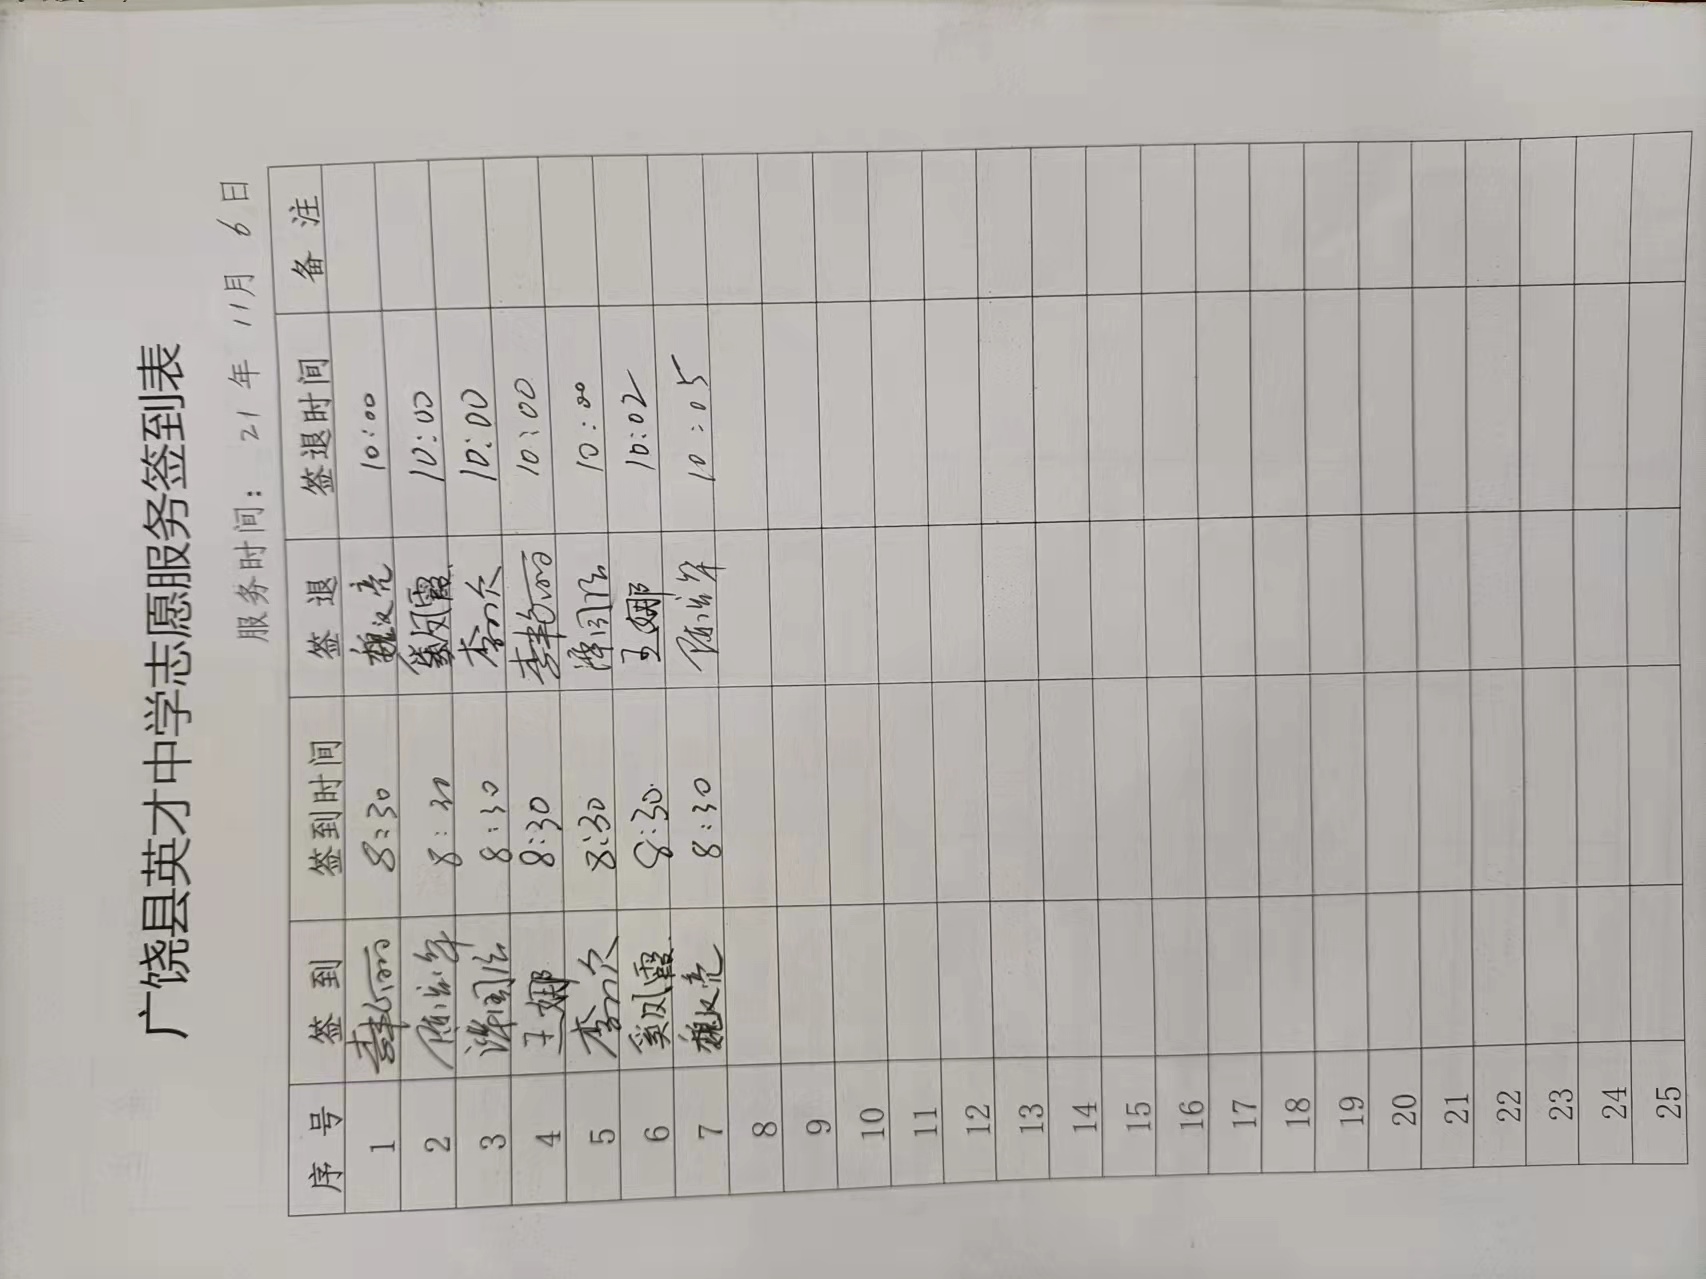 广饶县英才中学志愿服务签到表
服务时间：21年 11月 6日
序号 签到 签到时间 签退 签退时间 备注
1 8:30 魏汉亮 10:00
2 8:30 奚凤霞 10:00
3 8:30 李欠 10:00
4 王娜 8:30 10:00
5 李欠 8:30 10:00
6 奚凤霞 8:30 王娜 10:02
7 魏汉亮 8:30 10:05
8
9
10
11
12
13
14
15
16
17
18
19
20
21
22
23
24
25